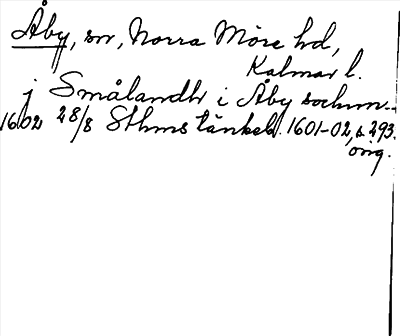 Åby, sn, Norra Möre hd,
Kalmar l.
j Smålandh i Åby sochnn
1602 28/8 Sthms tänkeb. 1601-02, s. 293.
orig.